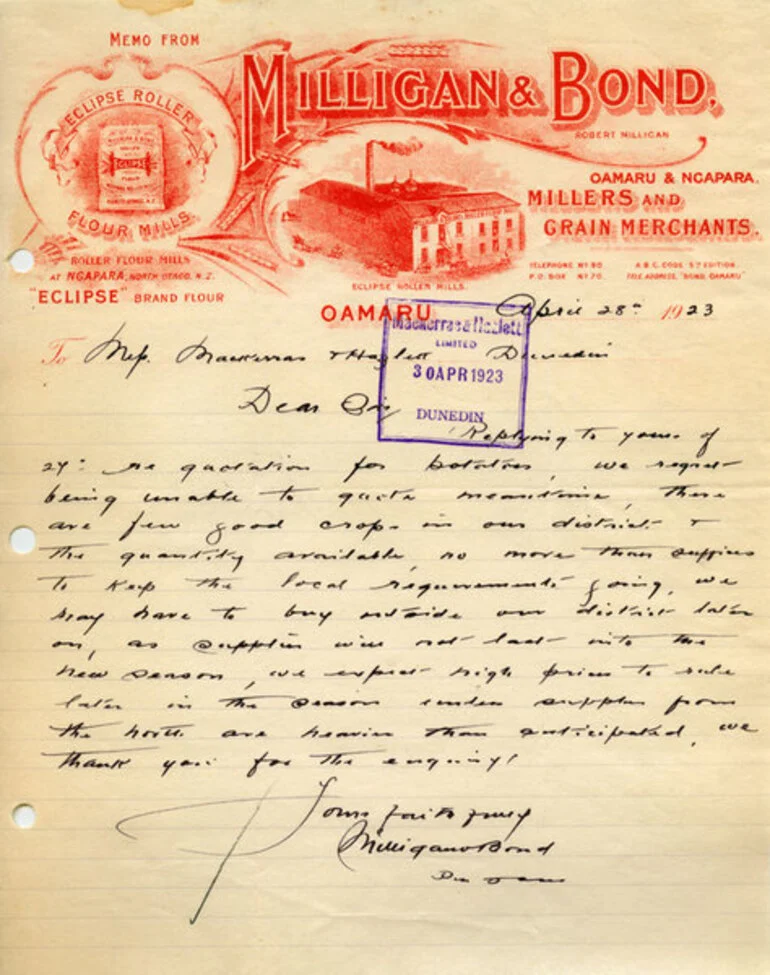 MEMO FROM
MILLIGAN & BOND,
ROBERT MILLIGAN
ECLIPSE ROLLER
ECLIPSE
FLOUR MILLS
OAMARU & NGAPARA.
MILLERS AND
GRAIN MERCHANTS.
ROLLER FLOUR MILLS
AT NGAPARA, NORTH OTAGO, N.Z.
"ECLIPSE" BRAND FLOUR
ECLIPSE ROLLER MILLS.
TELEPHONE Nº 90
P.O. BOX Nº 70.
A.B.C. CODE 5TH EDITION.
TELE ADDRESS, "BOND, OAMARU"
OAMARU April 28th 1923
Mackerras & Hazlett
LIMITED
30 APR 1923
DUNEDIN
To Messrs. Mackerras & Hazlett Dunedin
Dear Sirs
Replying to yours of
27th re quotation for potatoes, we regret
being unable to quote meantime, there
are few good crops in our district &
the quantity available, no more than suffices
to keep the local requirements going, we
may have to buy outside our district later
on, as supplies will not last into the
new season, we expect high prices to rule
later in the season unless supplies from
the north are heavier than anticipated, we
thank you for the enquiry!
Yours faithfully
Milligan & Bond